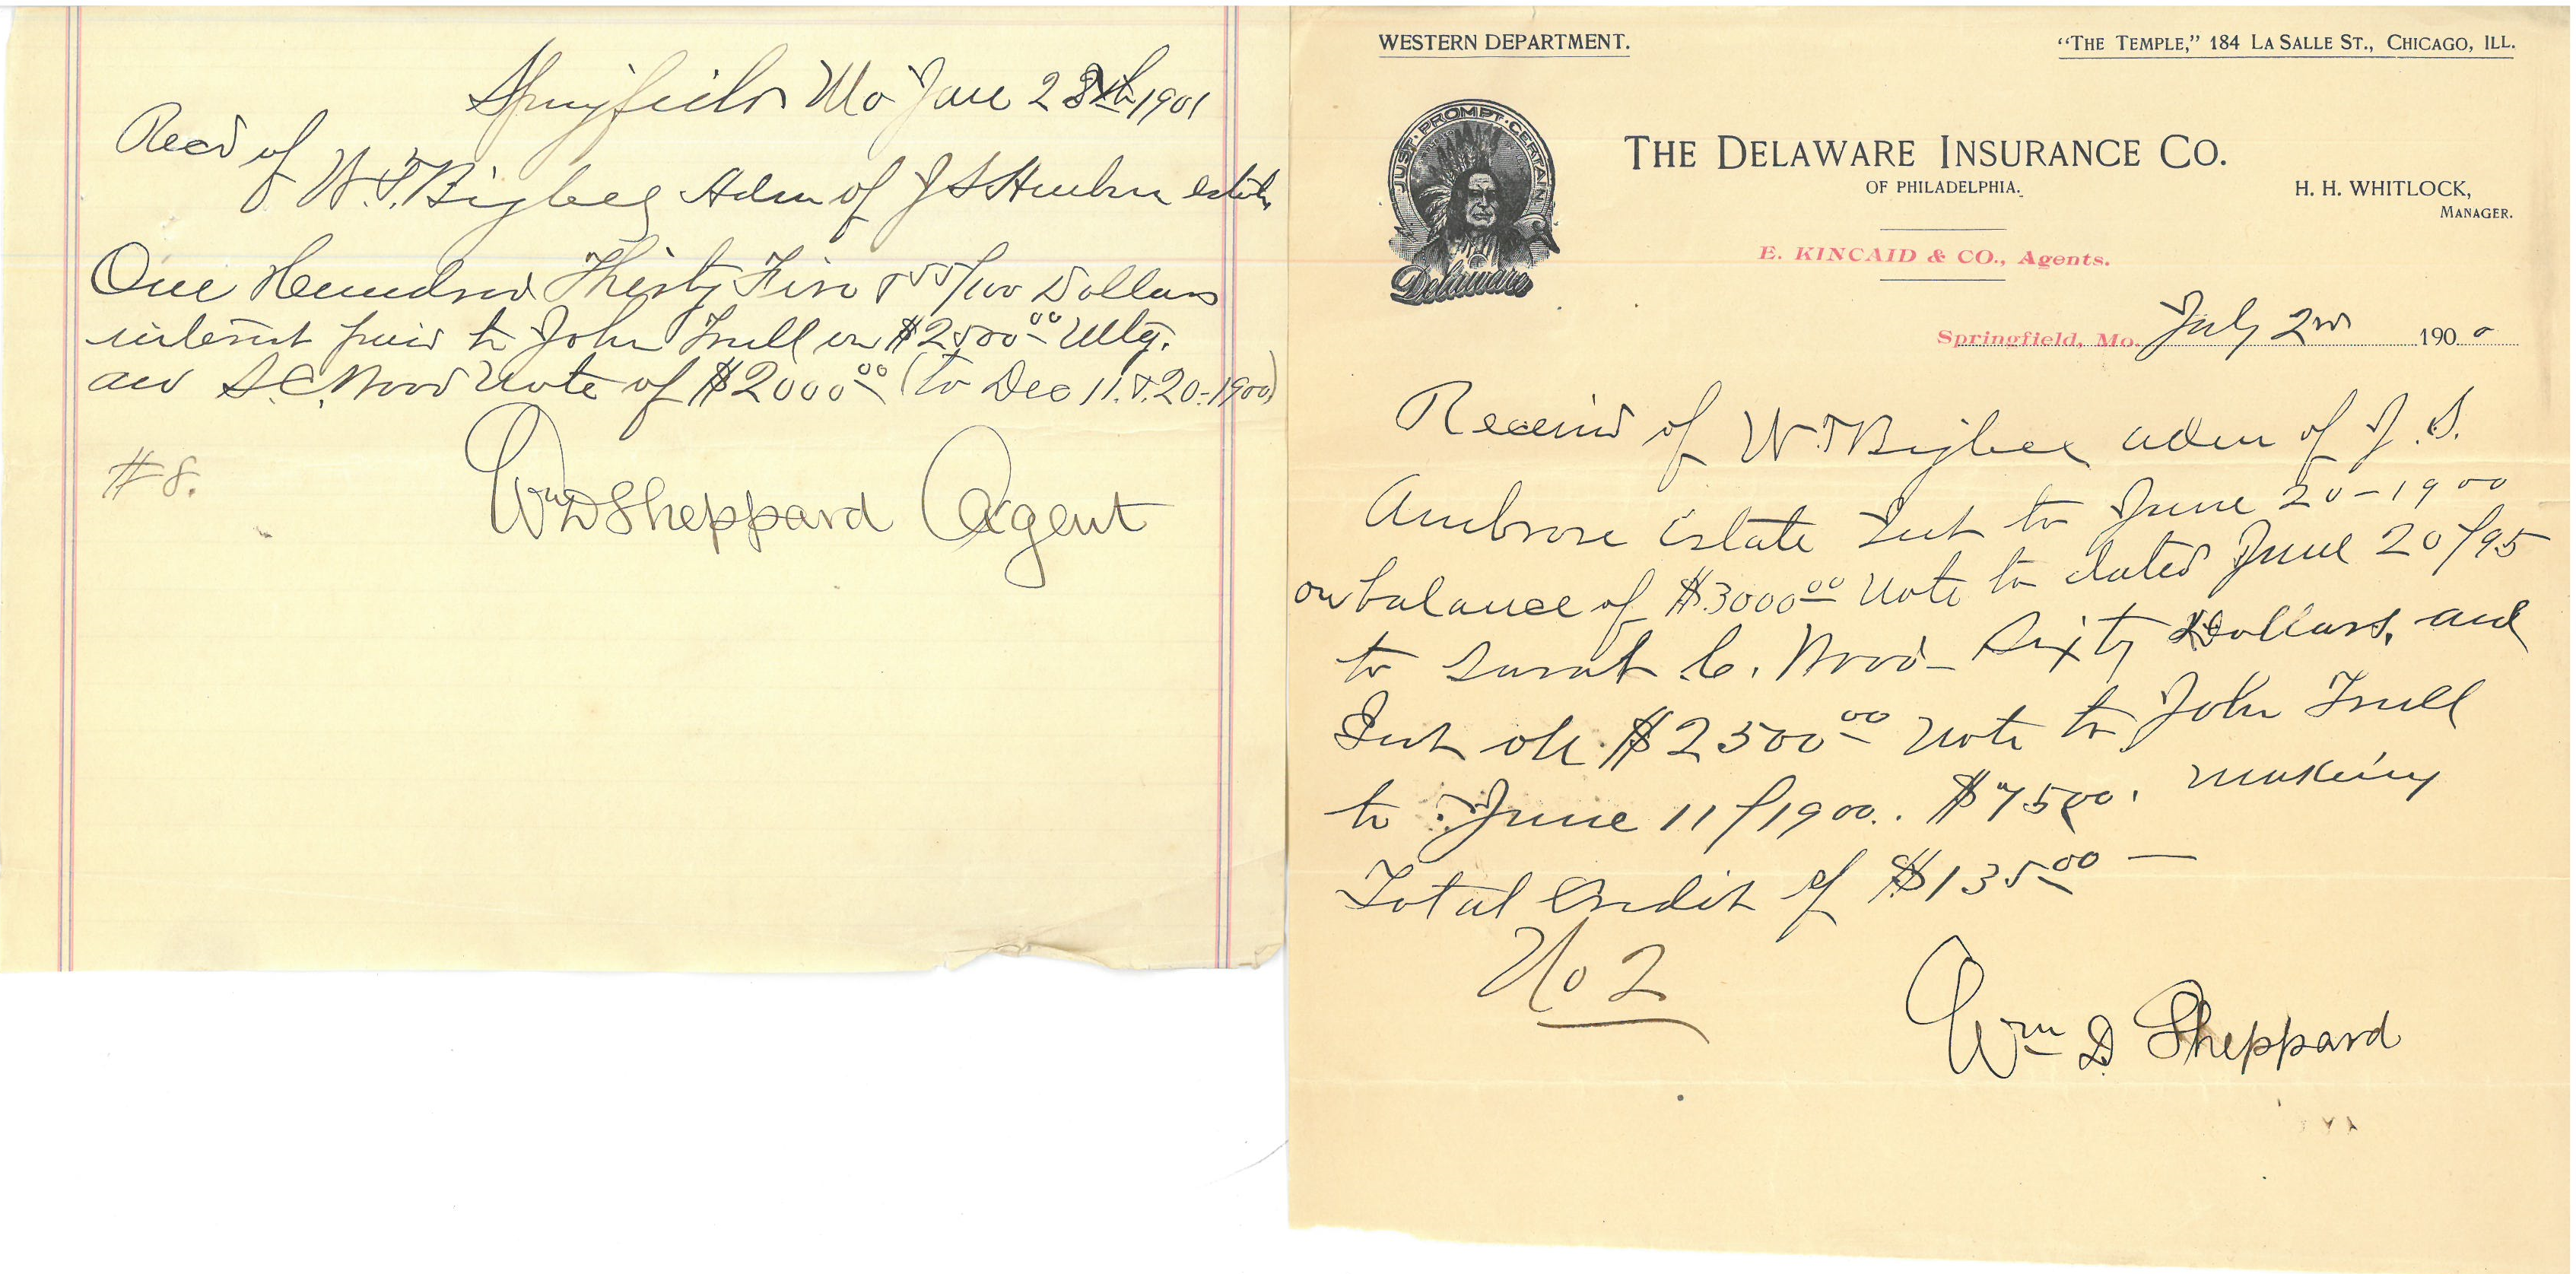 Springfield Mo Jan 28th 1901
Recd of
W.T. Bigbee Adm of J S estate
One Hundred Thirty Five & 55/100 Dollars
interest paid to John Trull on $2500.00 Mtg.
and S.C. Wood Note of $2000.00 (to Dec 11. & 20-1900)
#8.
Wm D Sheppard Agent
WESTERN DEPARTMENT.
"THE TEMPLE," 184 LA SALLE ST., CHICAGO, ILL.
JUST·PROMPT·CERTAIN
Delaware
THE DELAWARE INSURANCE CO.
OF PHILADELPHIA.
H. H. WHITLOCK,
MANAGER.
E. KINCAID & CO., Agents.
Springfield, Mo. July 2nd 1900
Received of W.T Bigbee adm of J. S.
Ambrose Estate Int to June 20-1900
on balance of $3000.00 Note to dated June 20/95
to Sarah C. Wood - Sixty Dollars, and
Int on $2500.00 Note to John Trull
to June 11/1900. $75.00. making
Total Credit of $135.00 —
No 2
Wm D Sheppard